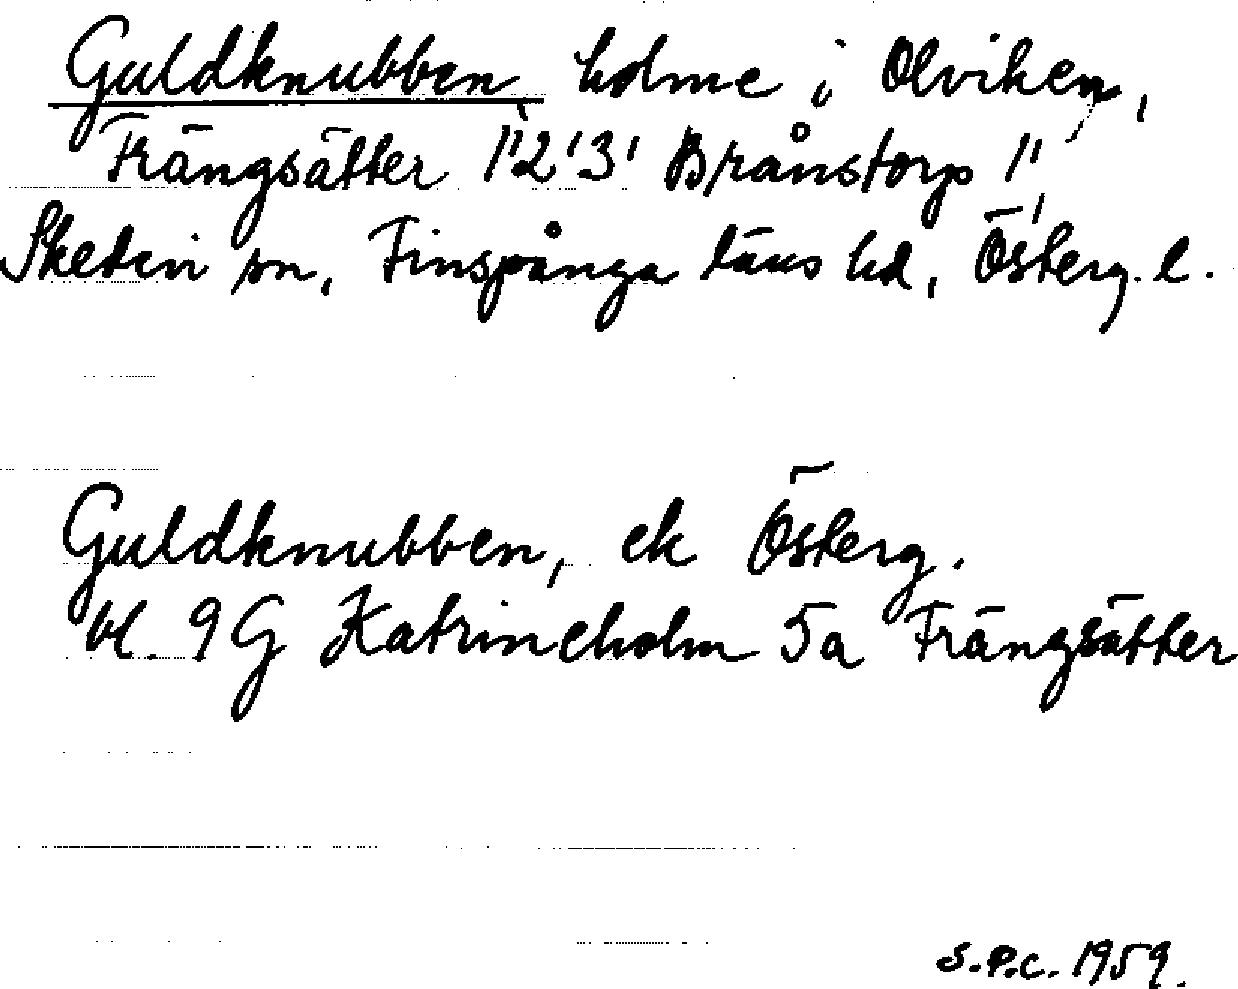 Guldknubben, holme i Olviken,
Frängsätter 1'2'3' Brånstorp 1',
Skedevi sn, Finspånga läns hd, Österg. l.
Guldknubben, ek Österg.
bl. 9G Katrineholm 5a Frängsätter
S.P.C. 1959.